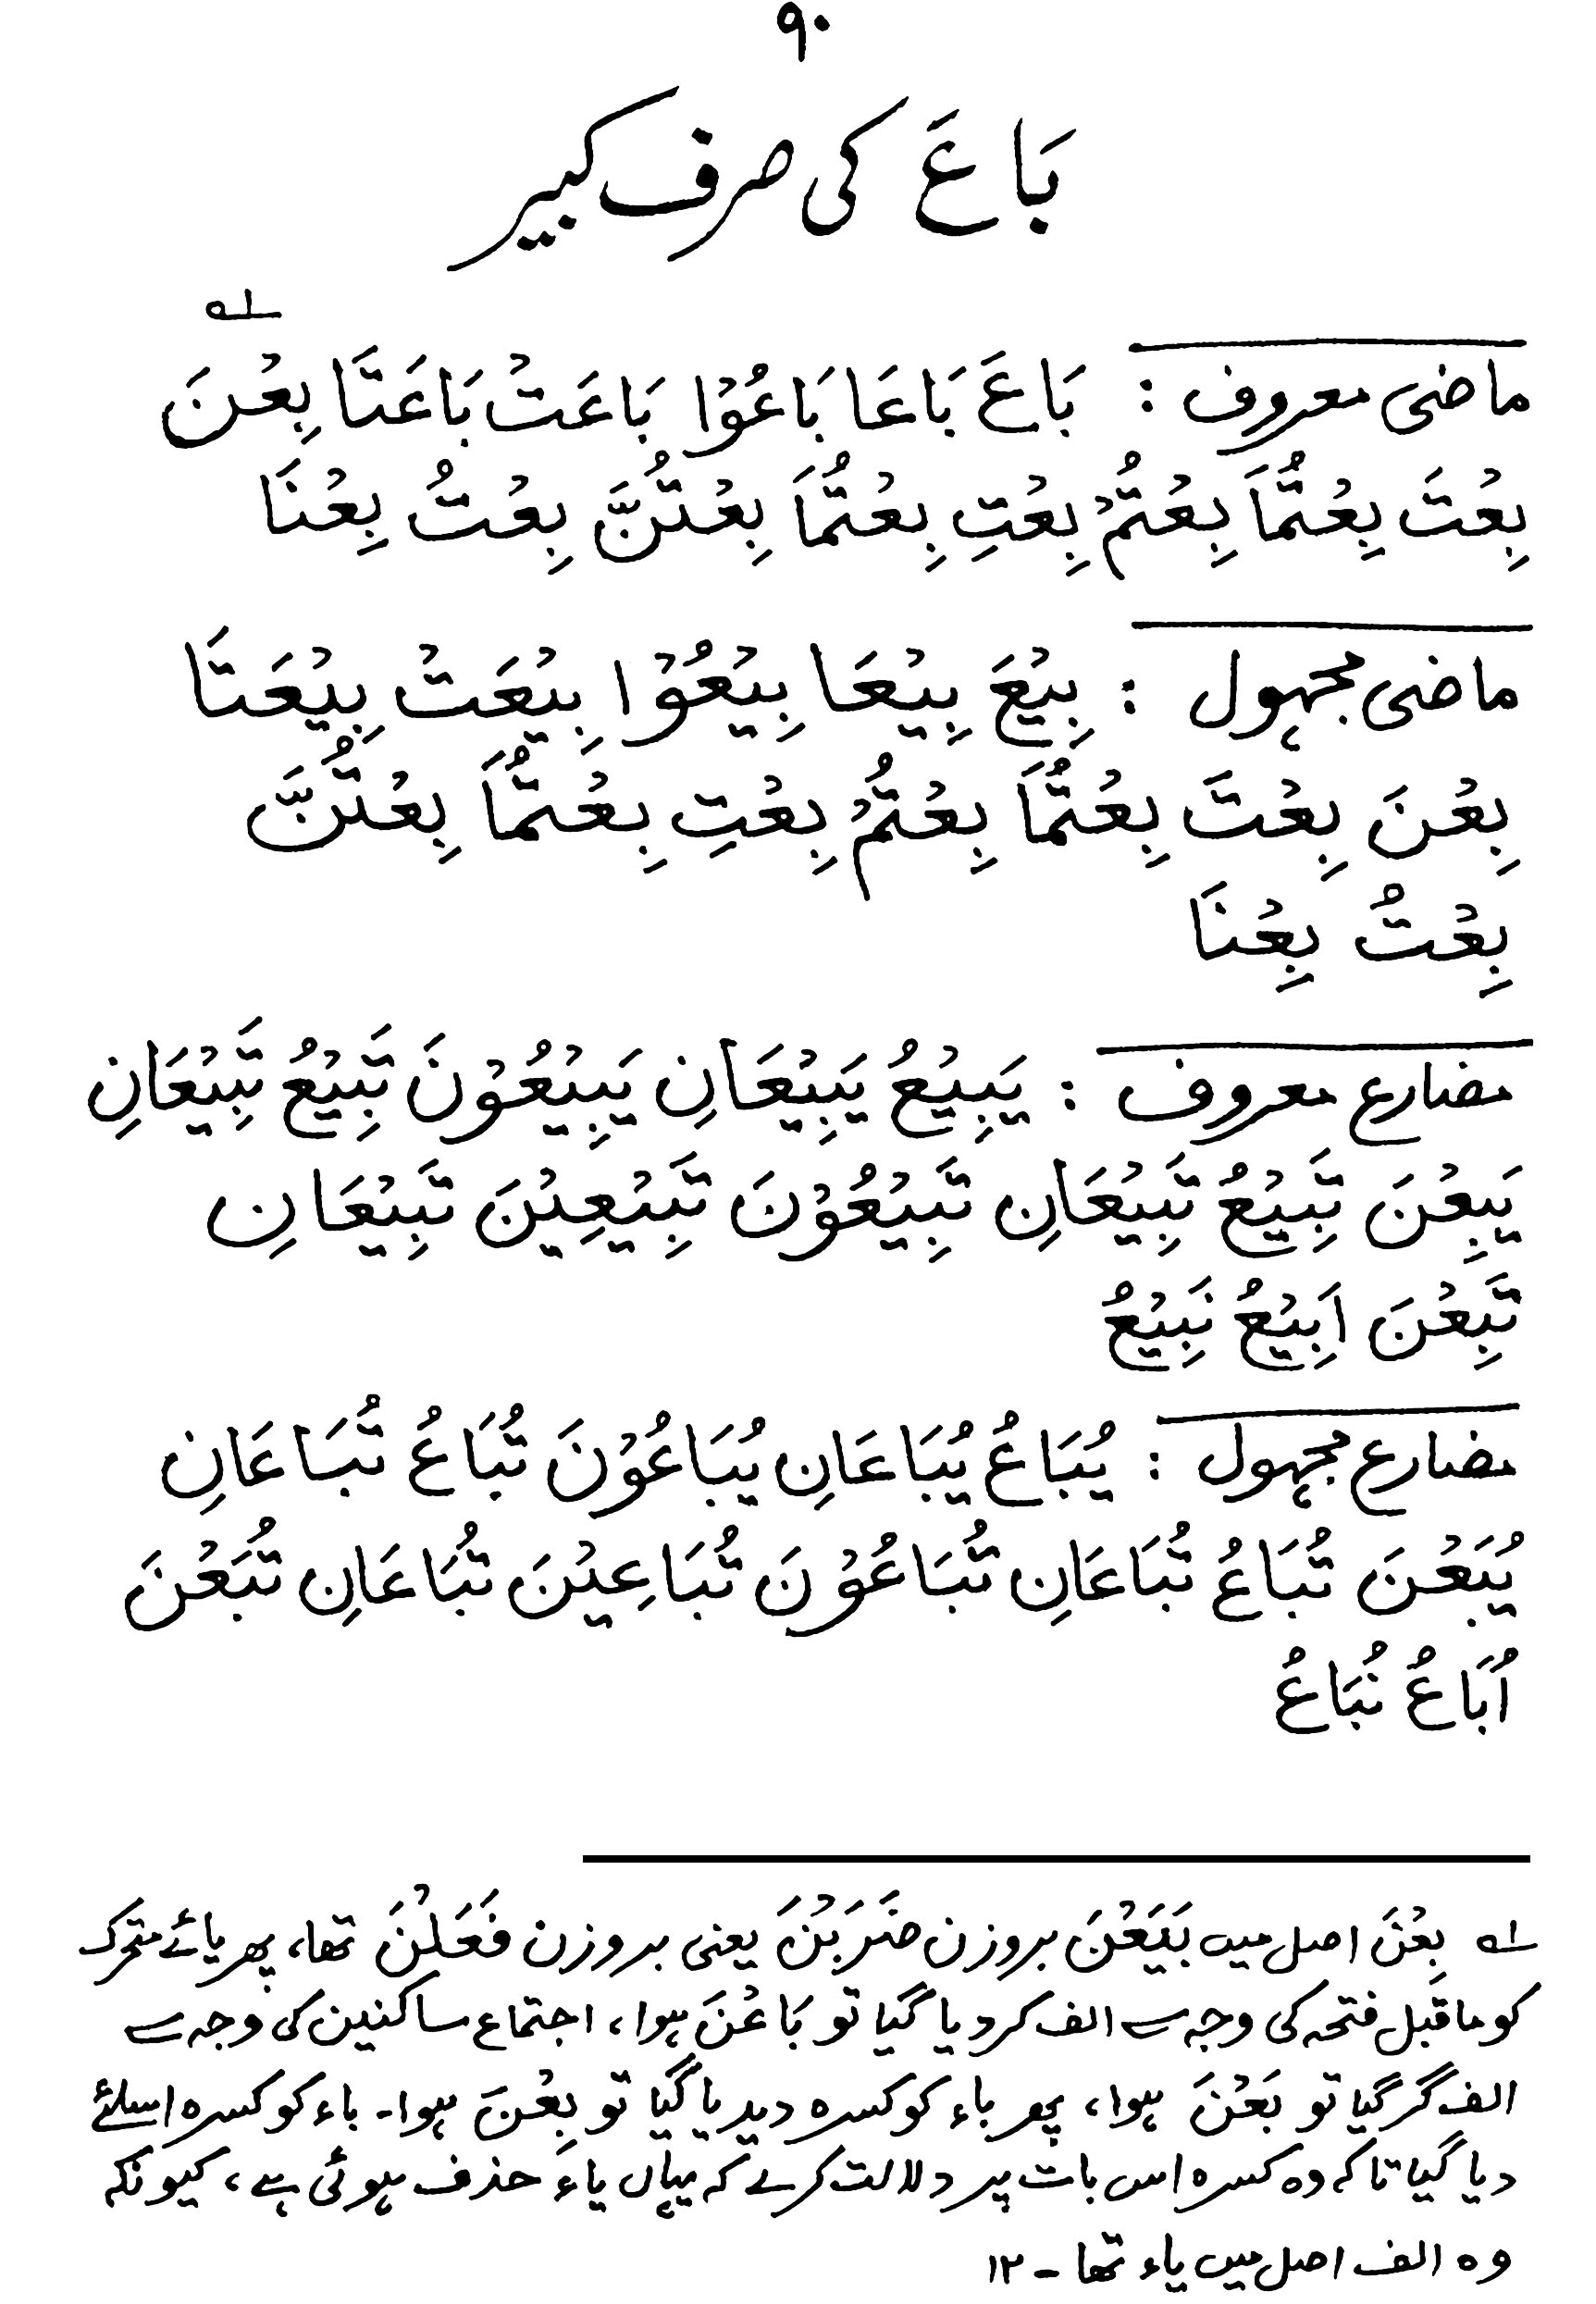 ۹۰
بَاعَ کی صرف کبیر
۱ہ
ماضی معروف : بَاعَ بَاعَا بَاعُوْا بَاعَتْ بَاعَتَا بِعْنَ
بِعْتَ بِعْتُمَا بِعْتُمْ بِعْتِ بِعْتُمَا بِعْتُنَّ بِعْتُ بِعْنَا
ماضی مجہول : بِيْعَ بِيْعَا بِيْعُوْا بِيْعَتْ بِيْعَتَا
بِعْنَ بِعْتَ بِعْتُمَا بِعْتُمْ بِعْتِ بِعْتُمَا بِعْتُنَّ
بِعْتُ بِعْنَا
مضارع معروف : يَبِيْعُ يَبِيْعَانِ يَبِيْعُوْنَ تَبِيْعُ تَبِيْعَانِ
يَبِعْنَ تَبِيْعُ تَبِيْعَانِ تَبِيْعُوْنَ تَبِيْعِيْنَ تَبِيْعَانِ
تَبِعْنَ اَبِيْعُ نَبِيْعُ
مضارع مجہول : يُبَاعُ يُبَاعَانِ يُبَاعُوْنَ تُبَاعُ تُبَاعَانِ
يُبَعْنَ تُبَاعُ تُبَاعَانِ تُبَاعُوْنَ تُبَاعِيْنَ تُبَاعَانِ تُبَعْنَ
اُبَاعُ نُبَاعُ
۱ہ بِعْنَ اصل میں بَيَعْنَ بروزن ضَرَبْنَ یعنی بروزن فَعَلْنَ تھا، پھر یائے متحرک
کو ماقبل فتحہ کی وجہ سے الف کردیا گیا تو بَاعْنَ ہوا، اجتماع ساکنین کی وجہ سے
الف گر گیا تو بَعْنَ ہوا، پھر باء کو کسرہ دیدیا گیا تو بِعْنَ ہوا۔ باء کو کسرہ اسلئے
دیا گیا تاکہ وہ کسرہ اس بات پر دلالت کرے کہ یہاں یاء حذف ہوئی ہے، کیونکہ
وہ الف اصل میں یاء تھا ۔ ۱۲